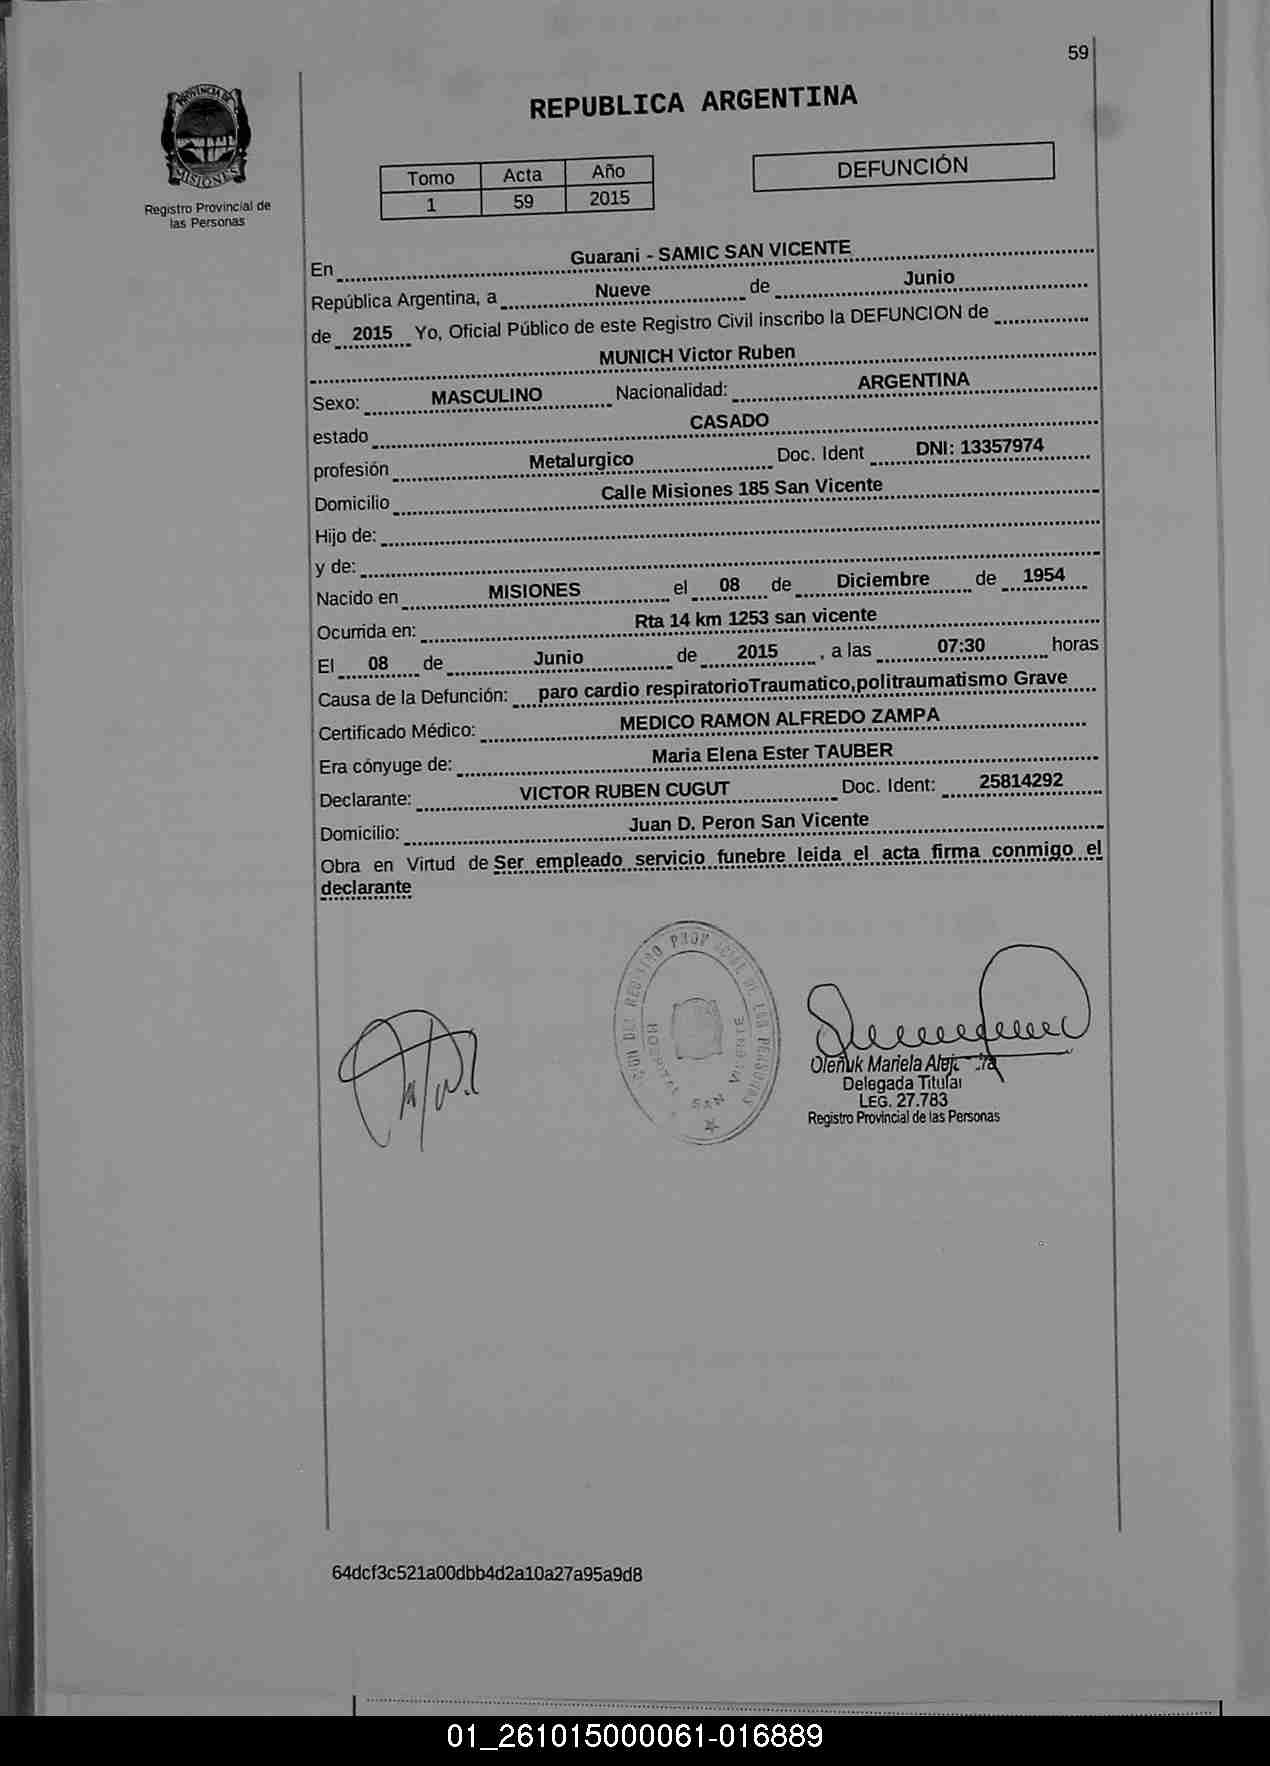 59
PROVINCIA DE
MISIONES
Registro Provincial de
las Personas
REPUBLICA ARGENTINA
Tomo Acta Año
1 59 2015
DEFUNCIÓN
En Guarani - SAMIC SAN VICENTE
República Argentina, a Nueve de Junio
de 2015 Yo, Oficial Público de este Registro Civil inscribo la DEFUNCION de
MUNICH Victor Ruben
Sexo: MASCULINO Nacionalidad: ARGENTINA
estado CASADO
profesión Metalurgico Doc. Ident DNI: 13357974
Domicilio Calle Misiones 185 San Vicente
Hijo de:
y de:
Nacido en MISIONES el 08 de Diciembre de 1954
Ocurrida en: Rta 14 km 1253 san vicente
El 08 de Junio de 2015 , a las 07:30 horas
Causa de la Defunción: paro cardio respiratorioTraumatico,politraumatismo Grave
Certificado Médico: MEDICO RAMON ALFREDO ZAMPA
Era cónyuge de: Maria Elena Ester TAUBER
Declarante: VICTOR RUBEN CUGUT Doc. Ident: 25814292
Domicilio: Juan D. Peron San Vicente
Obra en Virtud de Ser empleado servicio funebre leida el acta firma conmigo el
declarante
DEL REGISTRO PROV DE LAS PERSONAS
HOSPITAL SAN VICENTE
Oleñuk Mariela
Delegada Titular
LEG. 27.783
Registro Provincial de las Personas
64dcf3c521a00dbb4d2a10a27a95a9d8
01_261015000061-016889